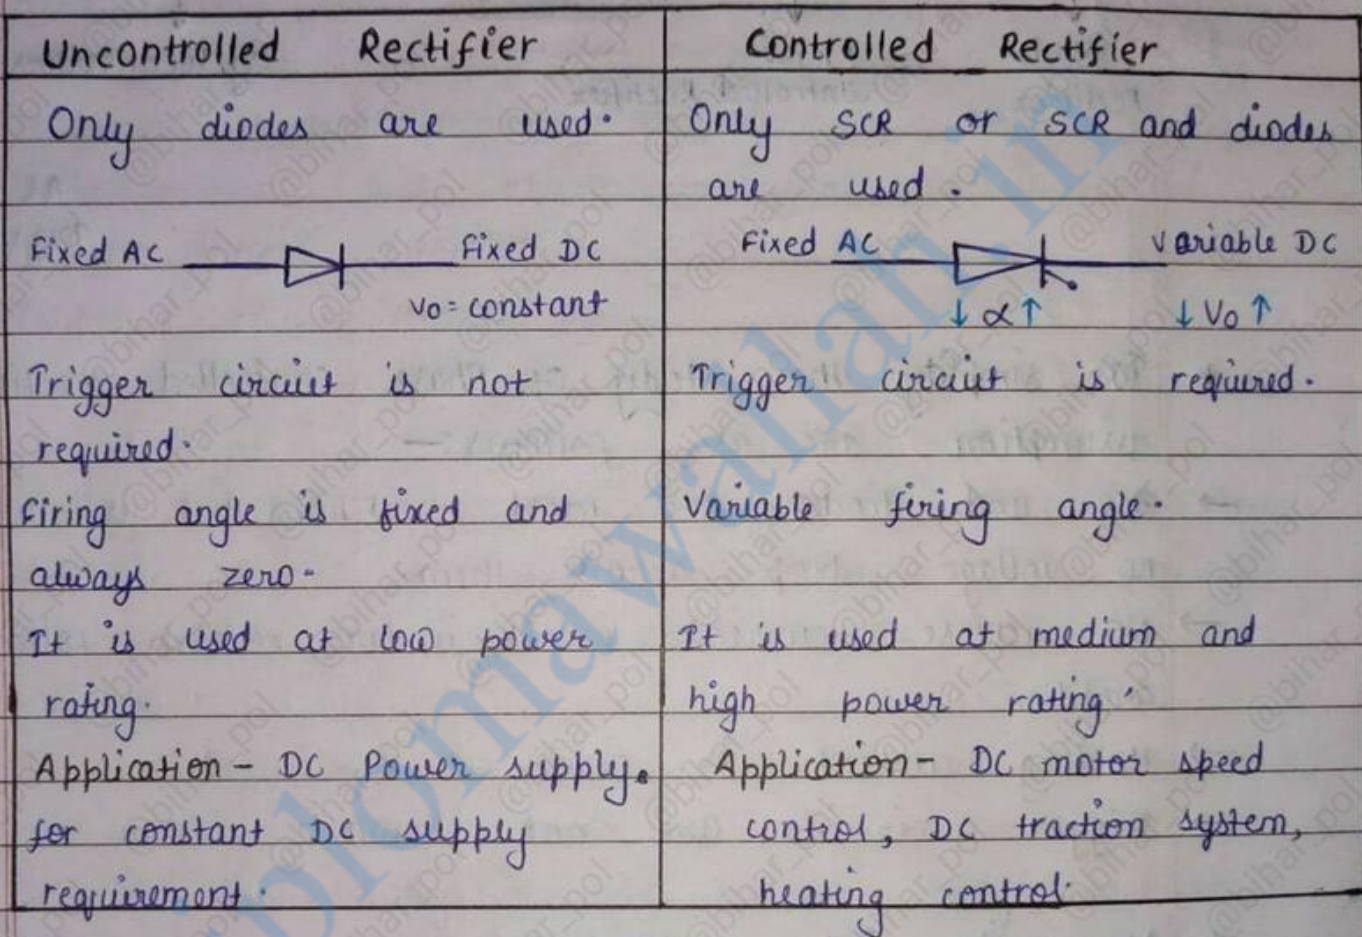 Uncontrolled Rectifier
Controlled Rectifier
Only diodes are used.
Only SCR or SCR and diodes
are used.
Fixed AC Fixed DC
Vo = constant
Fixed AC Variable DC
↓ α ↑ ↓ Vo ↑
Trigger circiut is not
required.
Trigger circiut is required.
Firing angle is fixed and
always zero.
Variable firing angle.
It is used at low power
rating.
It is used at medium and
high power rating.
Application - DC Power supply.
for constant DC supply
requirement.
Application - DC motor speed
control, DC traction system,
heating control.
plomawalah.in
@bihar_pol